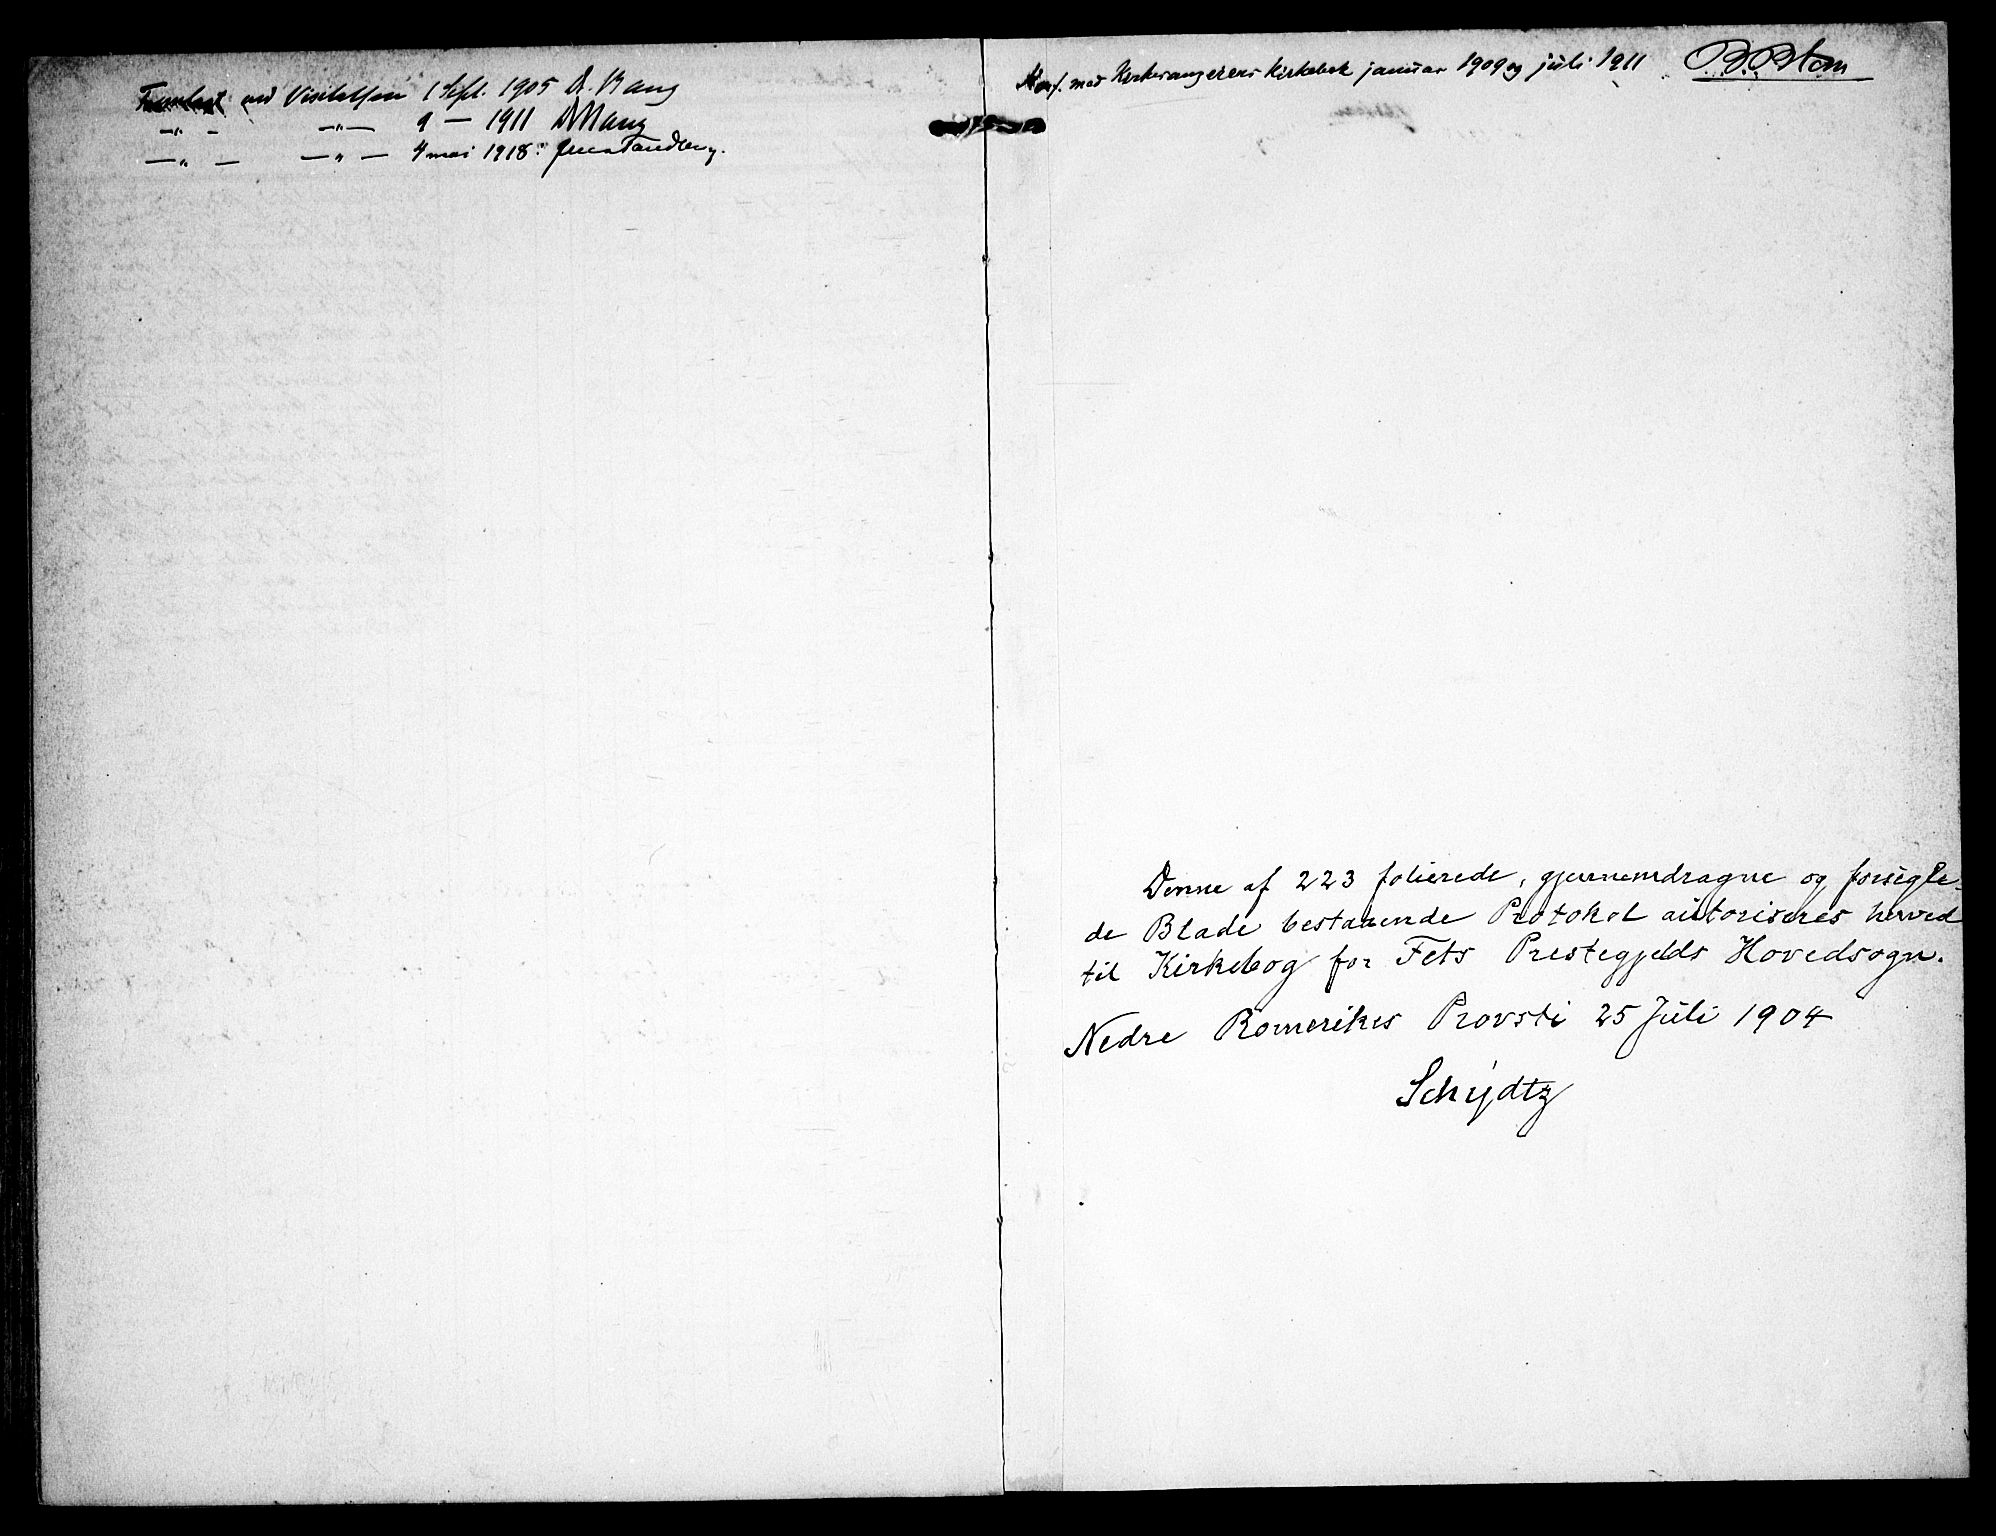 Fremlagt ved Visitatsen 1 Sept. 1905 A. Bang
—„— —„— 9 — 1911 A Bang
—„— —„— 4 mai 1918. Jens Tandberg.
Konf. med Kirkesangerens kirkebok januar 1909 og juli 1911 B. Blom
Denne af 223 folierede, gjennemdragne og forsegle-
de Blade bestaaende Protokol autoriseres herved
til Kirkebog for Fets Prestegjelds Hovedsogn.
Nedre Romerikes Provsti 25 Juli 1904
Schydtz